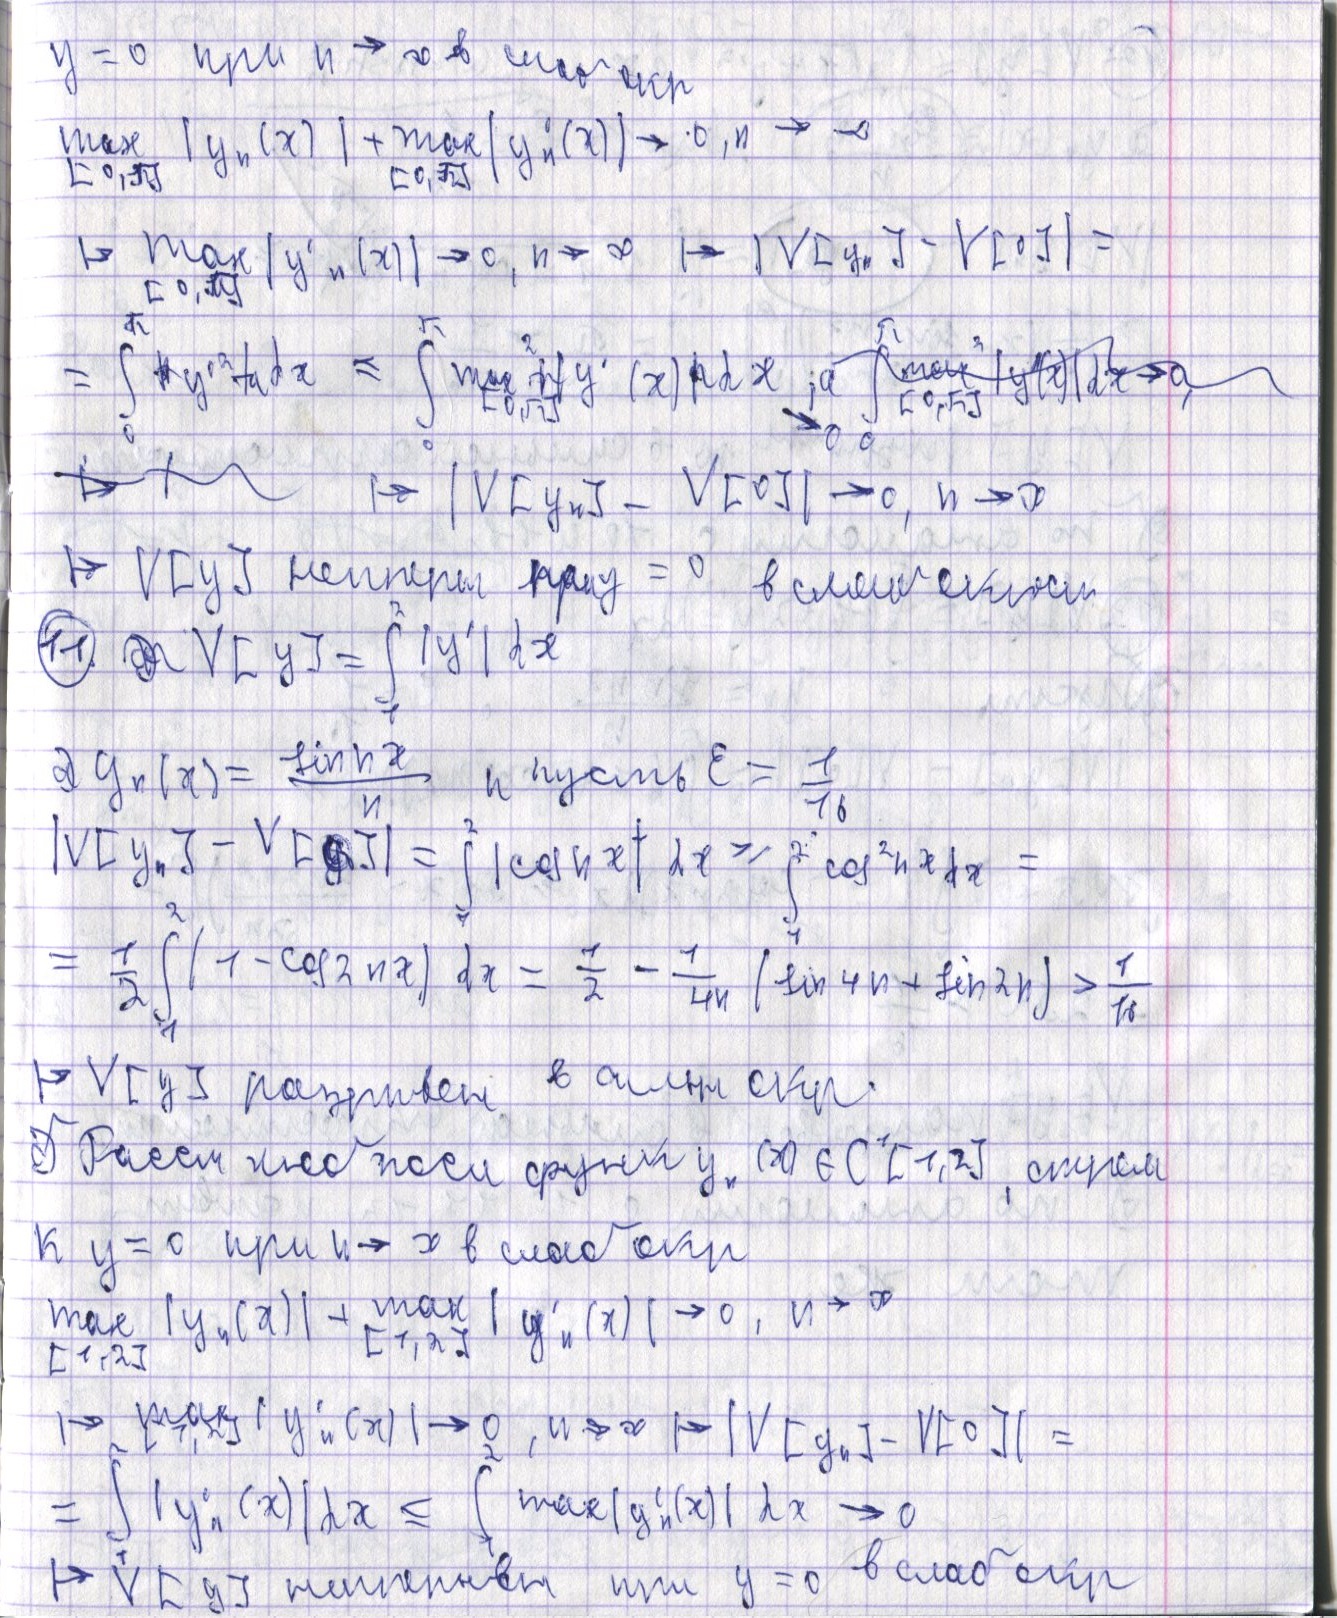 y = 0 при n → ∞ в слаб окр
max |yₙ(x)| + max |y'ₙ(x)| → 0, n → ∞
[0,π] [0,π]
⊢> max |y'ₙ(x)| → 0, n → ∞ ⊢> |V[yₙ] - V[0]| =
[0,π]
= ∫₀^π y'² dx ≤ ∫₀^π max² |y'(x)| dx → 0
[0,π]
⊢> |V[yₙ] - V[0]| → 0, n → ∞
⊢> V[y] непреры при y = 0 в слаб окрост
11. V[y] = ∫₁² |y'| dx
yₙ(x) = sin nx / n и пусть ε = 1/16
|V[yₙ] - V[y]| = ∫₁² |cos nx| dx ≥ ∫₁² cos² nx dx =
= 1/2 ∫₁² (1 - cos 2nx) dx = 1/2 - 1/4n (sin 4n + sin 2n) > 1/16
⊢> V[y] разрывен в сильн окр.
2) Рассм любую посл функ yₙ(x) ∈ C¹[1,2],
к y = 0 при n → ∞ в слаб окр
max |yₙ(x)| + max |y'ₙ(x)| → 0, n → ∞
[1,2] [1,2]
⊢> max |y'ₙ(x)| → 0, n → ∞ ⊢> |V[yₙ] - V[0]| =
[1,2]
= ∫₁² |y'ₙ(x)| dx ≤ ∫₁² max |y'ₙ(x)| dx → 0
⊢> V[y] непрерывен при y = 0 в слаб окр